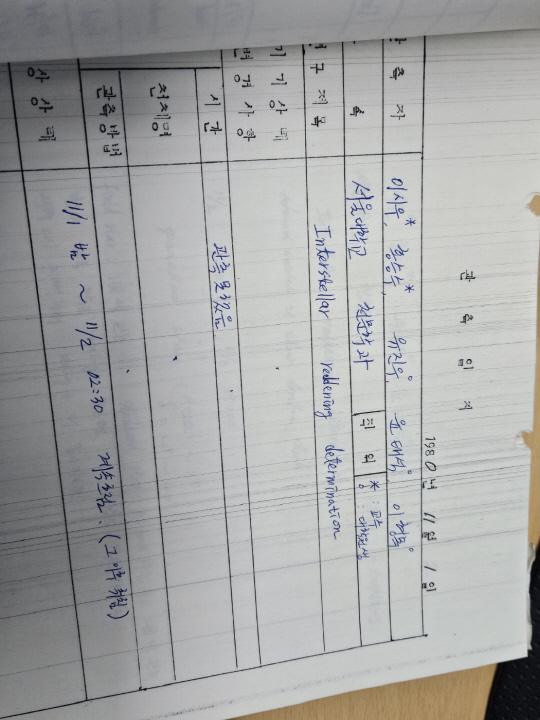 관측일지
1980년 11월 1일
관측자 이시우*, 홍승수*, 유진우°, 윤태석°, 이형목°
속 서울대학교 천문학과 직위 * : 교수 ° : 대학원생
연구제목 Interstellar reddening determination
기기상태
변경사항
시간 관측 못했음
천체명
관측방법
상상태 11/1 밤 ~ 11/2 02:30 계속흐림. (그 이후 취침)